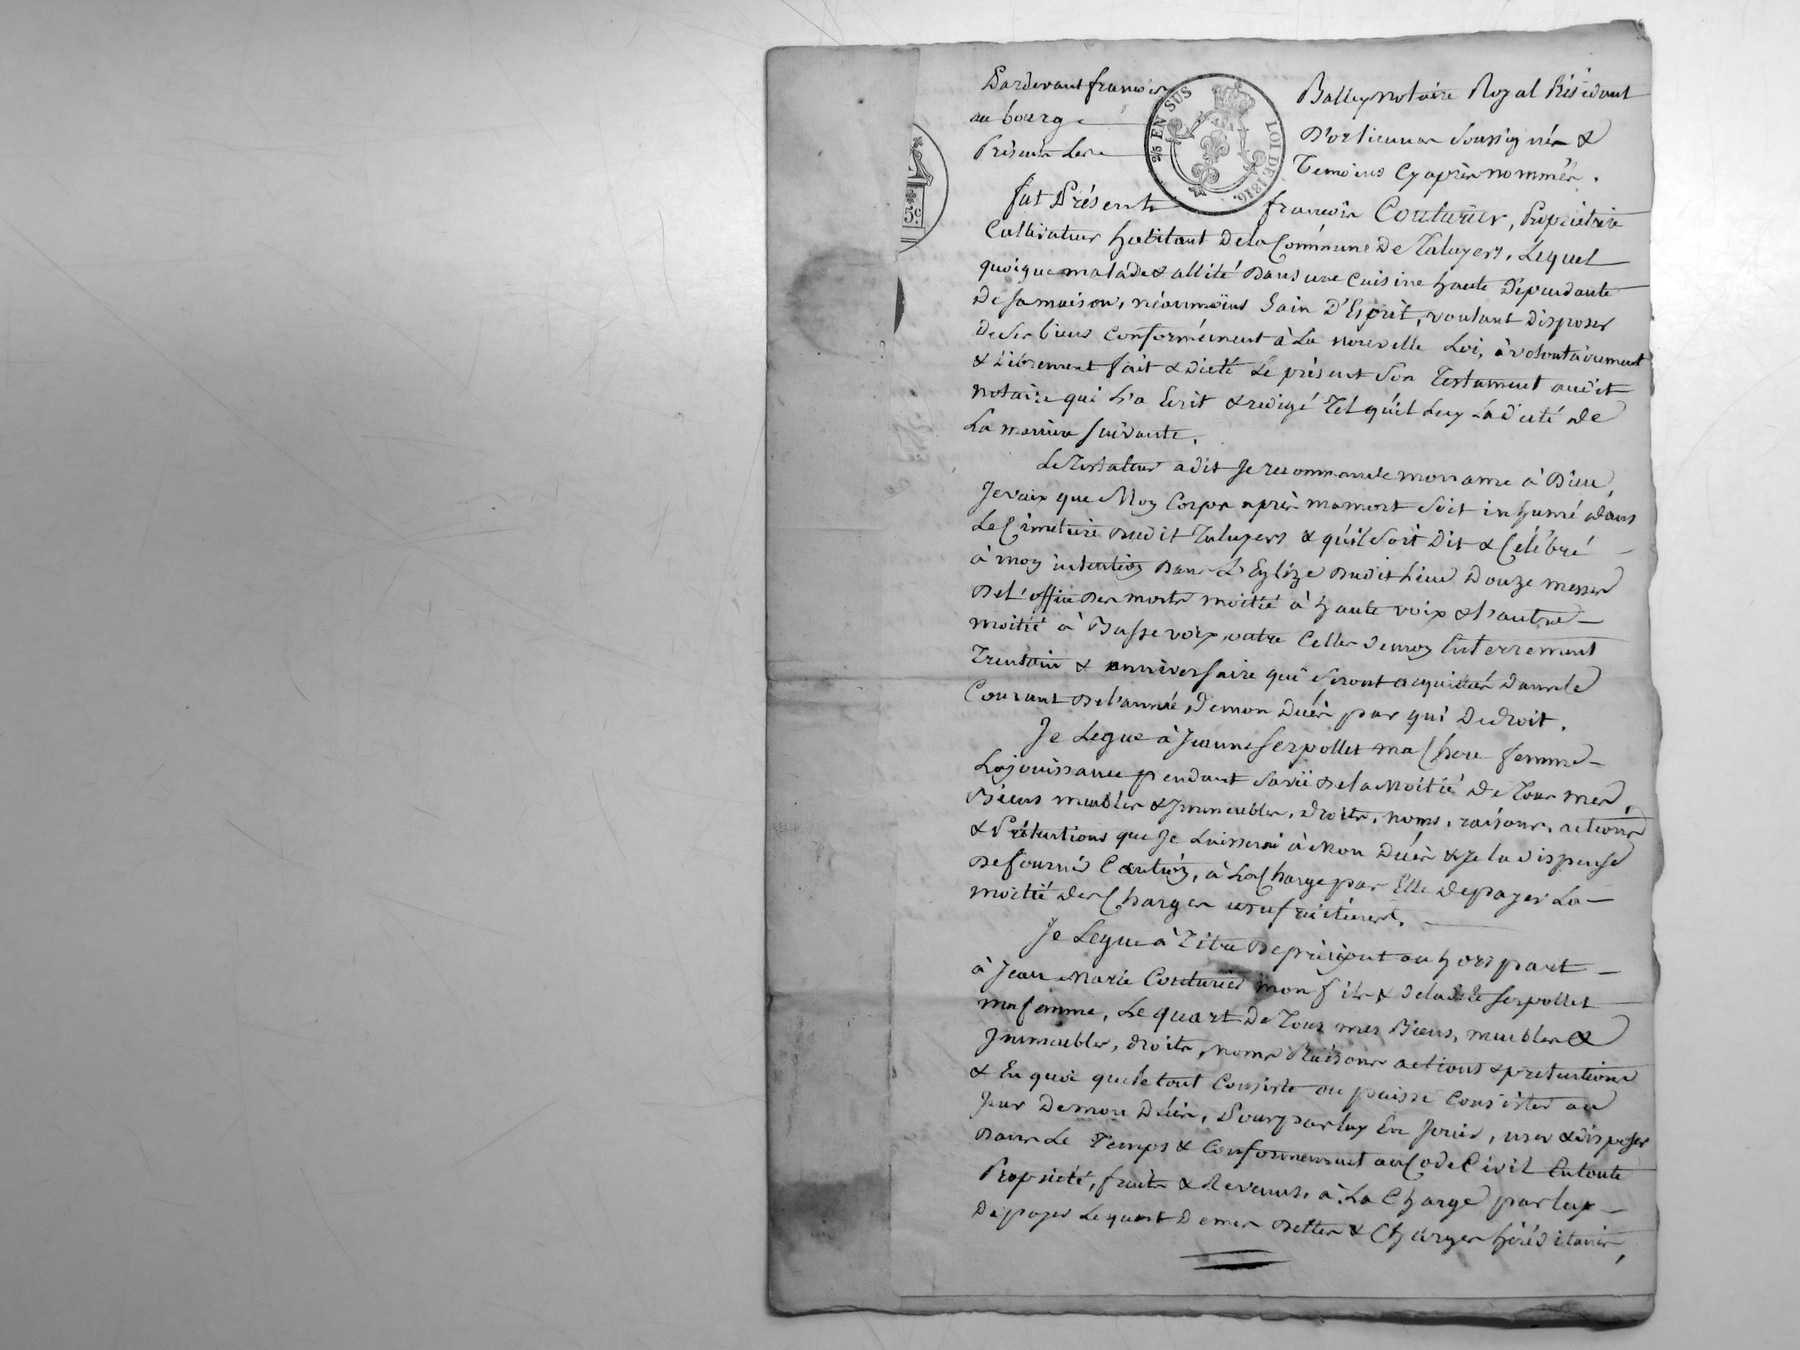 Pardevant françois Balley notaire Royal Résidant
au bourg D'orlienas soussigné &
Présens les Temoins Cy après nommés.
2/5 EN SUS
LOI DE 1816.
5 c.
fut Présent françois Couturier, Propriétaire
Cultivateur habitant De la Commune De Taluyers, Lequel
quoique malade & allité Dans une Cuisine haute Dépendante
De sa maison, néanmoins Sain D'Esprit, voulant Disposer
de Ses biens Conformément à La nouvelle Loi, à volontairement
& Librement fait & Dicté Le présent Son Testament audit
notaire qui L'a Ecrit & redigé Tel qu'il Luy La dicté de
La maniere Suivante.
Le Testateur a dit Je recommande mon ame à Dieu,
Je vaix que Moy Corps après ma mort Soit inhumé dans
Le Cimetière Dudit Taluyers & qu'il Soit Dit & Célébré
à moy intention Dans L'Eglize Dudit Lieu Douze messes
De L'office Des morts moitié à haute voix & L'autre
moitié à Basse voix, outre Celles De moy Enterrement
Trentain & anniversaire qui Seront acquittés Dans le
Courant De L'année, De mon Décès par qui De droit.
Je Legue à Jeanne Serpollet ma Chere femme
La jouissance pendant Sa vie De la Moitié De Tous mes
Biens meubles & Immeubles, droits, noms, raisons, actions
& Prétentions que Je Laisserai à Mon Décès & Je la dispense
De fournir Caution, à La Charge par Elle De payer La
moitié Des Charges usufruitieres.
Je Legue à Titre De préciput ou hors part
à Jean Marie Couturier mon fils & De ladite Serpollet
ma femme, Le quart De Tous mes Biens, meubles &
Immeubles, droits, noms Raisons actions & pretentions
& En quoi que le tout Consiste ou puisse Consister au
Jour De mon Décès, Pour par luy En Jouir, user & disposer
Dans Le Temps & Conformément au Code Civil En toute
Propriété, fruits & Revenus, à La Charge par luy
De payer Le quart De mes Dettes & Charges héréditaires,